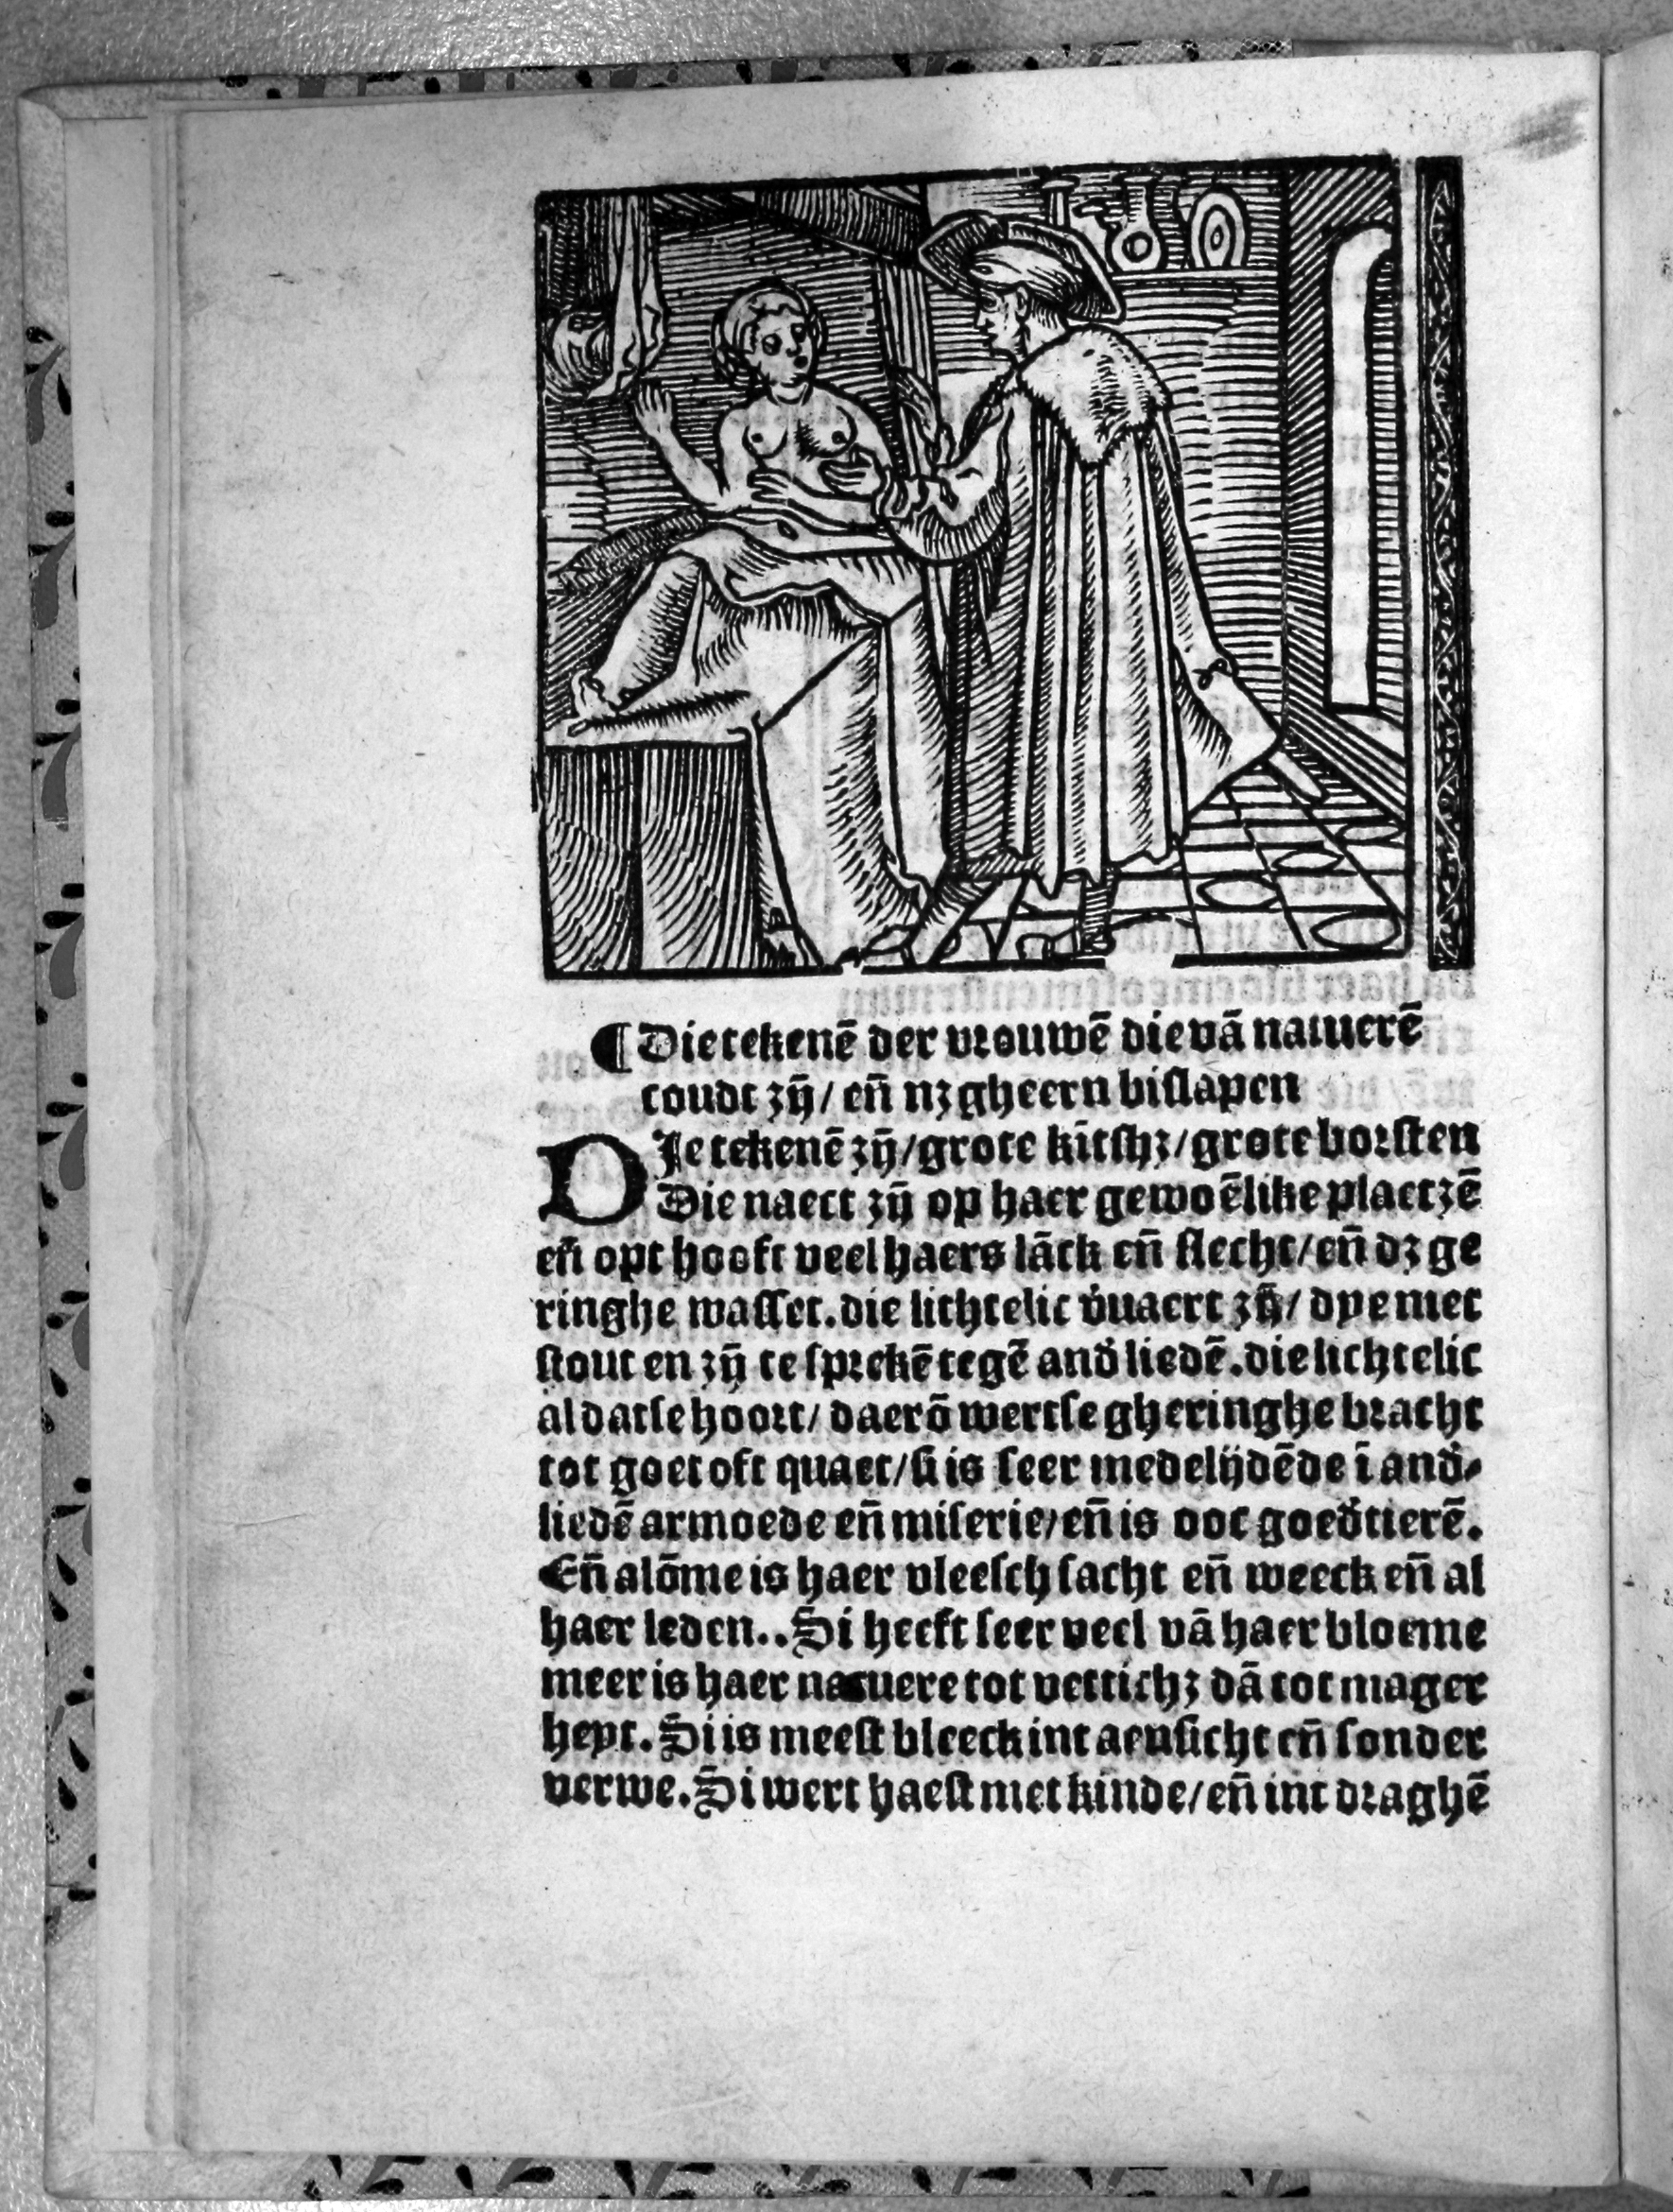 ¶ Die tekenē der vrouwē die vā natuerē
coudt zȳ/ en̄ nz gheern bislapen
DIe tekenē zȳ/grote kitshz/grote borsten
Die naect zȳ op haer gewoēlike plaetzē
en̄ opt hooft veel haers lāck en̄ slecht/en̄ dz ge
ringhe wasset.die lichtelic v̉uaert zȳ/ dye met
stout en zȳ te sprekē tegē and̉ liedē.die lichtelic
al datse hoort/ daerō wertse gheringhe bracht
tot goet oft quaet/si is seer medelijdēde ī and̉⸗
liedē armoede en̄ miserie/en̄ is ooc goed̉tierē.
En̄ alōme is haer vleesch sacht en̄ weeck en̄ al
haer leden..Si heeft seer veel vā haer bloeme
meer is haer natuere tot vettichz dā tot mager
heyt.Si is meest bleeck int aensicht en̄ sonder
verwe.Si wert haest met kinde/en̄ int draghē